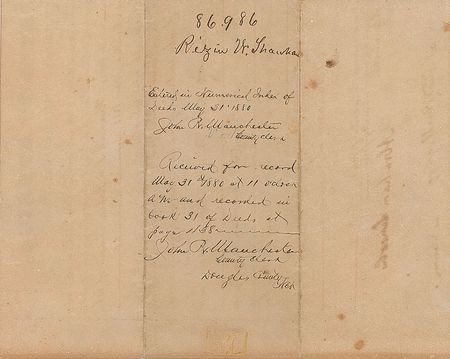 86986
Rezin W. Shawhan
Entered in Numerical Index of
Deeds May 31st 1880
John R. Manchester
County Clerk
Received for record
May 31st 1880 at 11 oclock
A M and recorded in
book 31 of Deeds at
page 1138
John R. Manchester
County Clerk
Douglas County
Neb